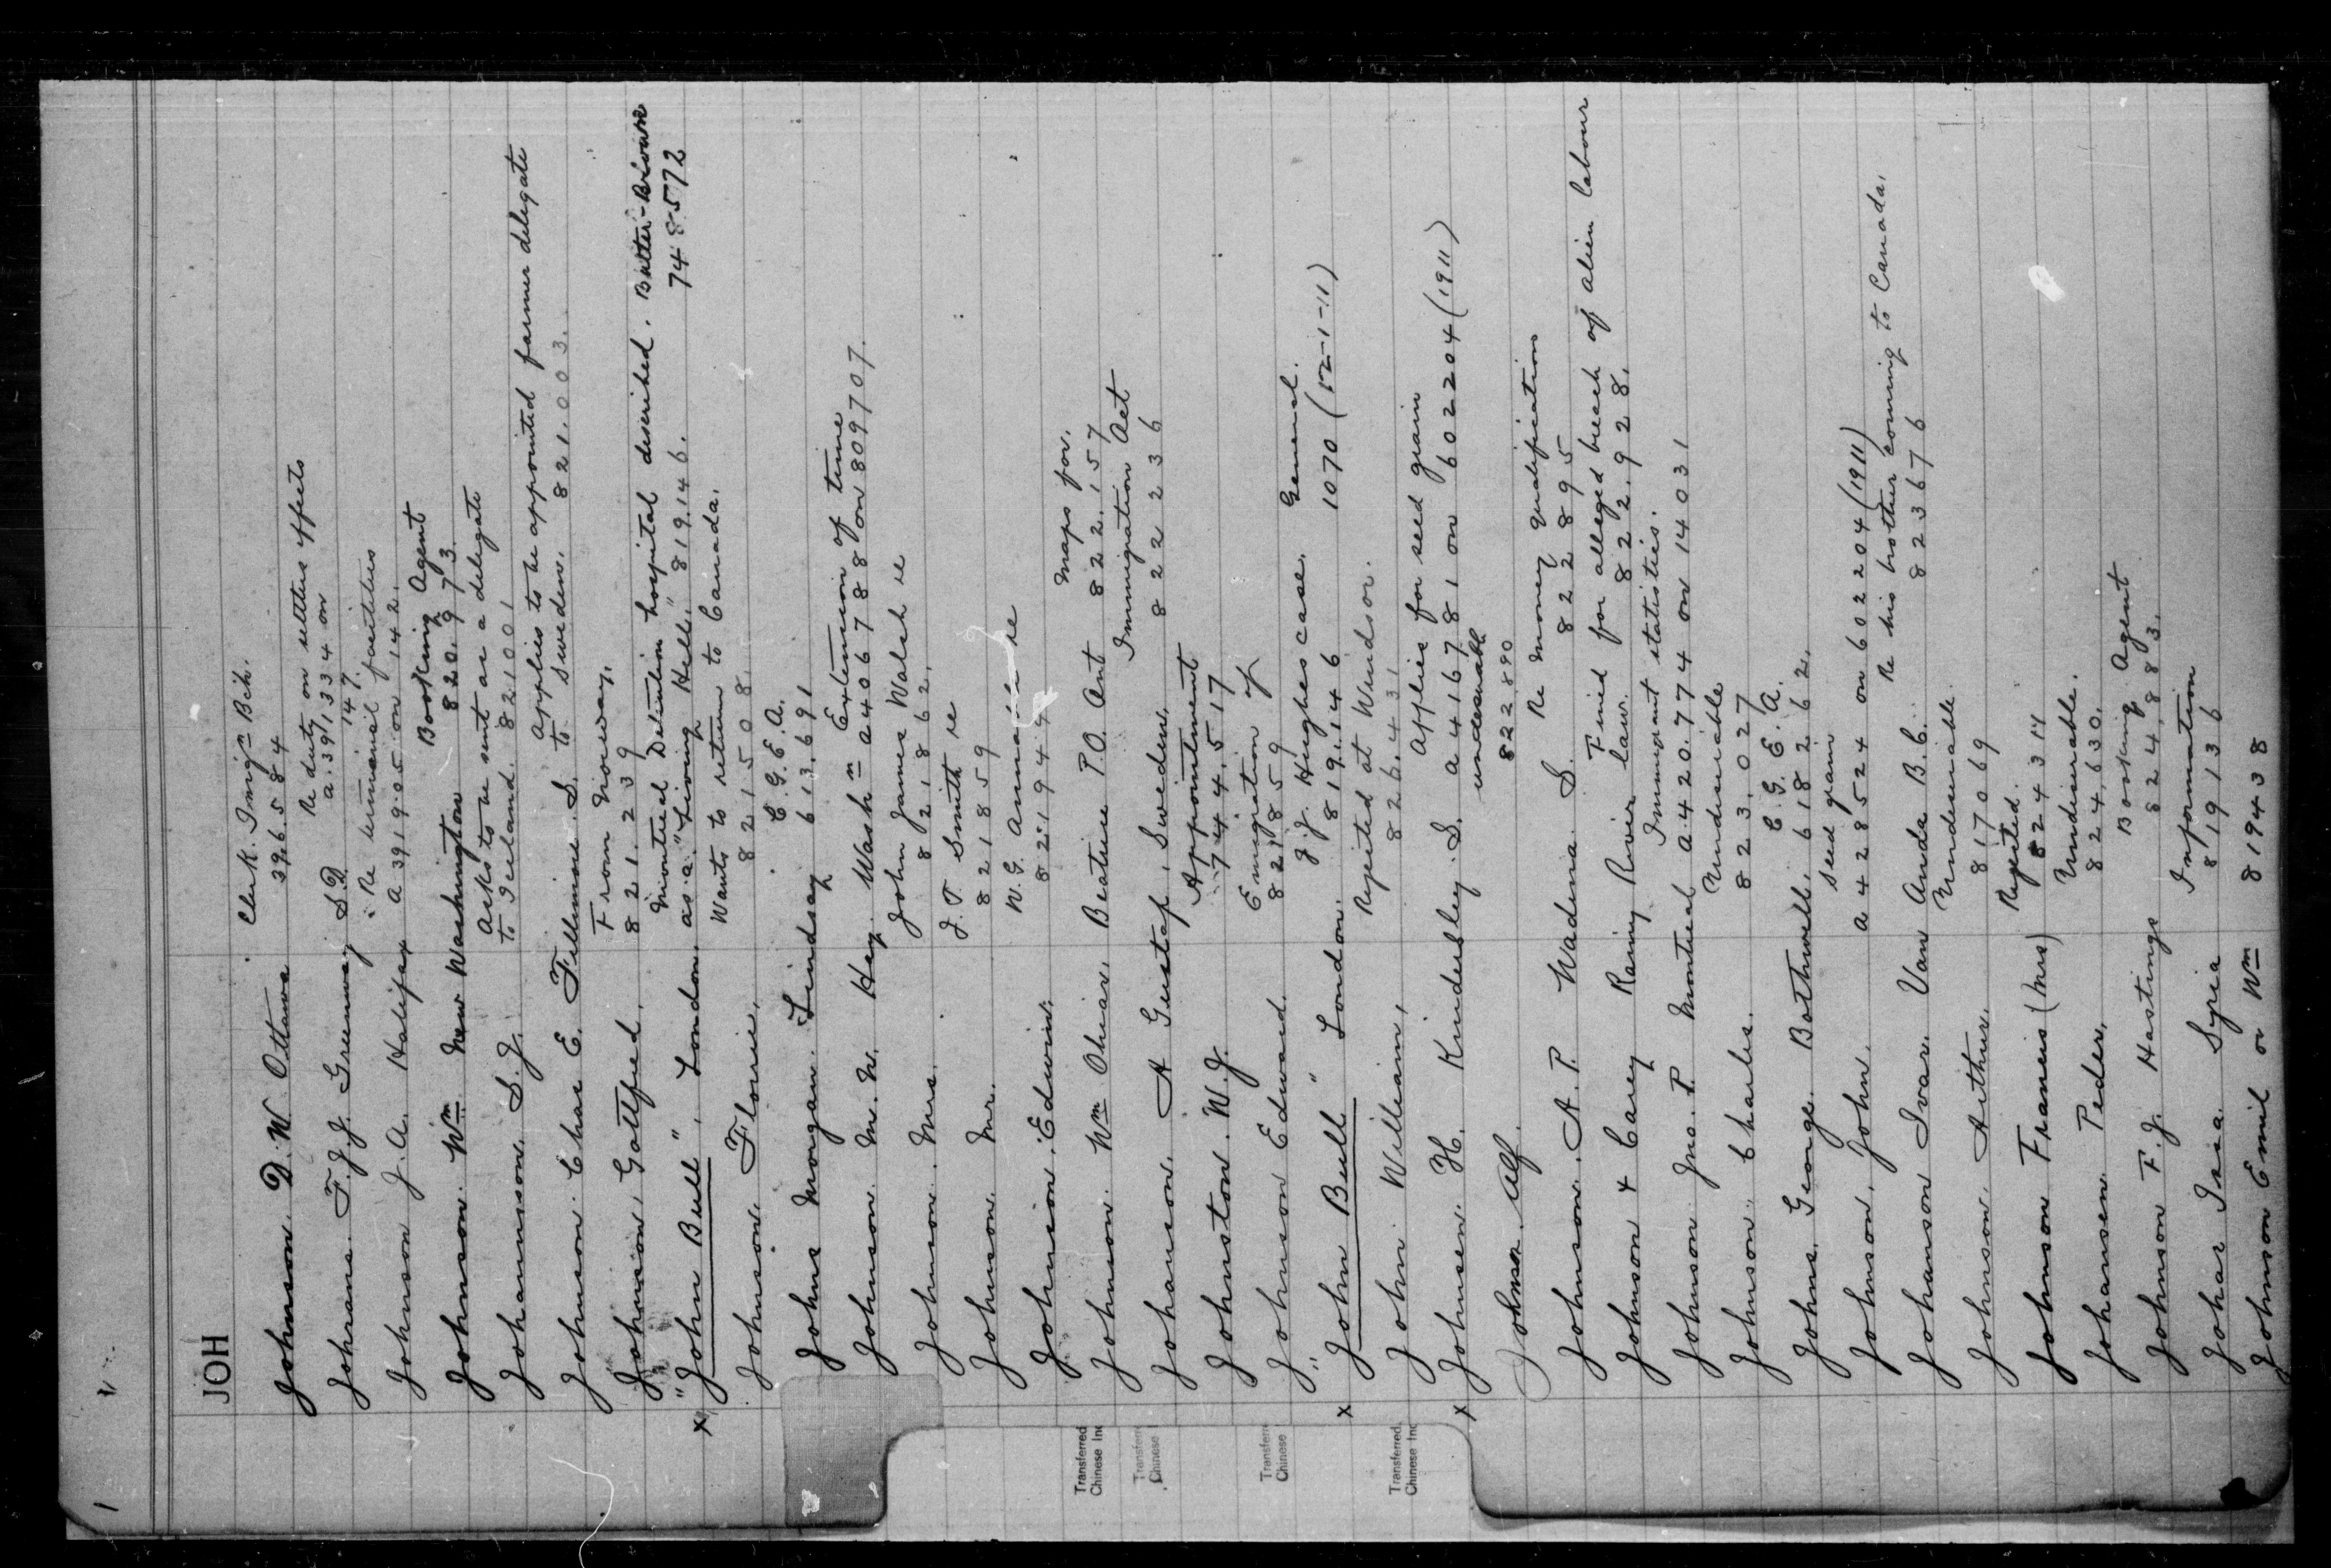 JOH
Johnson. D. W. Ottawa Clerk. Imigⁿ Bch. 396584
Johnrane. F. J. J. Greenway S.D. Re duty on settlers effects a. 391334 on 147.
Johnson J. A. Halifax Re terminal facilities a 391905 on 142.
Johnson. Wᵐ. New Washington Booking Agent 820.973.
Johannsson. S. J. Asks to be sent as a delegate to Iceland. 821001
Johnson. Chas E. Fillmore. S. Applies to be appointed farmer delegate to Sweden. 821.003.
Johnsion, Gottfried, From Norway, 821.239
x "John Bull", London. Montreal Detention hospital described. as a "Living Hell." 819.146. 748572
Johnsion. Florrie, Wants to return to Canada. 821508.
Johns Morgan. Lindsay E. G. E. A. 613691
Johnson. M. W. Hey. Washⁿ Extension of time a 406788 on 809707.
Johnson. Mrs. John James Walsh re 821862.
Johnson. Mr. J. T. Smith re 821859
Johnsion, Edwin. W. G. Annable re 821944
Johnson. Wᵐ Ohias, Beature P.O. Ont Maps for. 822.157
Johanson. A Gustaf, Sweden. Immigration Act 822236
Johnston. W. J. Appointment 744.517
Johnson Edward. Emigration of 821859
x "John Bull" London. J. J. Hughes case. 819.146 General. 1070 (12-1-11)
John. William, Rejected at Windsor. 826.431
x Johnsen. H. Kindersley. S. Applies for seed grain a 4416781 on 602204 (1911)
Johnson. Alf. undesirable 822.890
Johnson. A. P. Wadena. S. Re money qualifications 822895
Johnson & Carey Rainy River Fined for alleged breach of alien labour law. 822.928.
Johnson Jno. P. Montreal Immigrant statistics. a. 420.774 on 14031
Johnson. Charles. Undesirable 823.027
Johns. George. Bothwell. E. G. E. A. 618262.
Johnson. John. seed grain a 428524 on 602204 (1911)
Johanson Ivar. Van Anda B. C. Re his brother coming to Canada. 823676
Johnson. Arthur. Undesirable 817069
Johnson Francis (Mrs) Rejected. 824314
Johansen. Peder, Undesirable. 824,630.
Johnson F. J. Hastings Booking Agent 824,883.
Johar Isia. Syria Information 819136
Johnson Emil or Wᵐ 819438
Transferred
Chinese Ind
Transferre
Chinese
Transferre
Chinese
Transferred
Chinese Ind